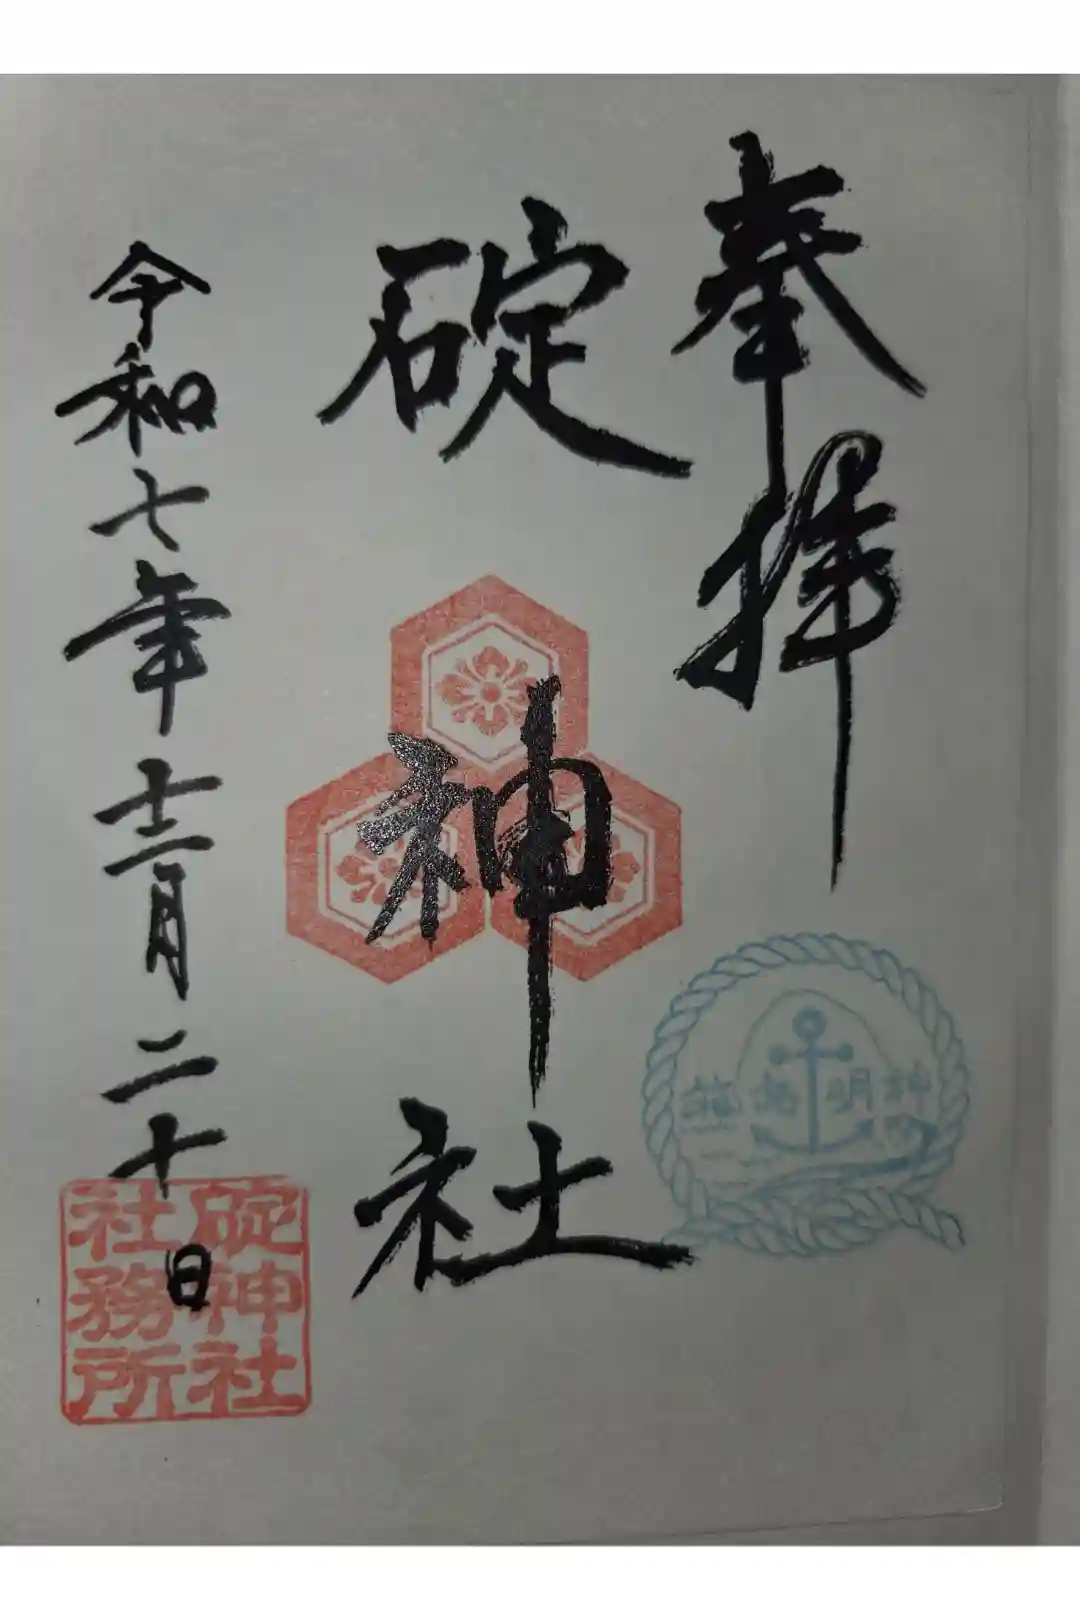 奉拝
碇神社
令和七年十二月二十日
碇神社
社務所
明神